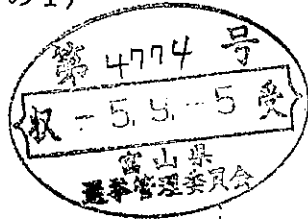 の1)
第 4774 号
収 -5.9.-5 受
富山県
選挙管理委員会